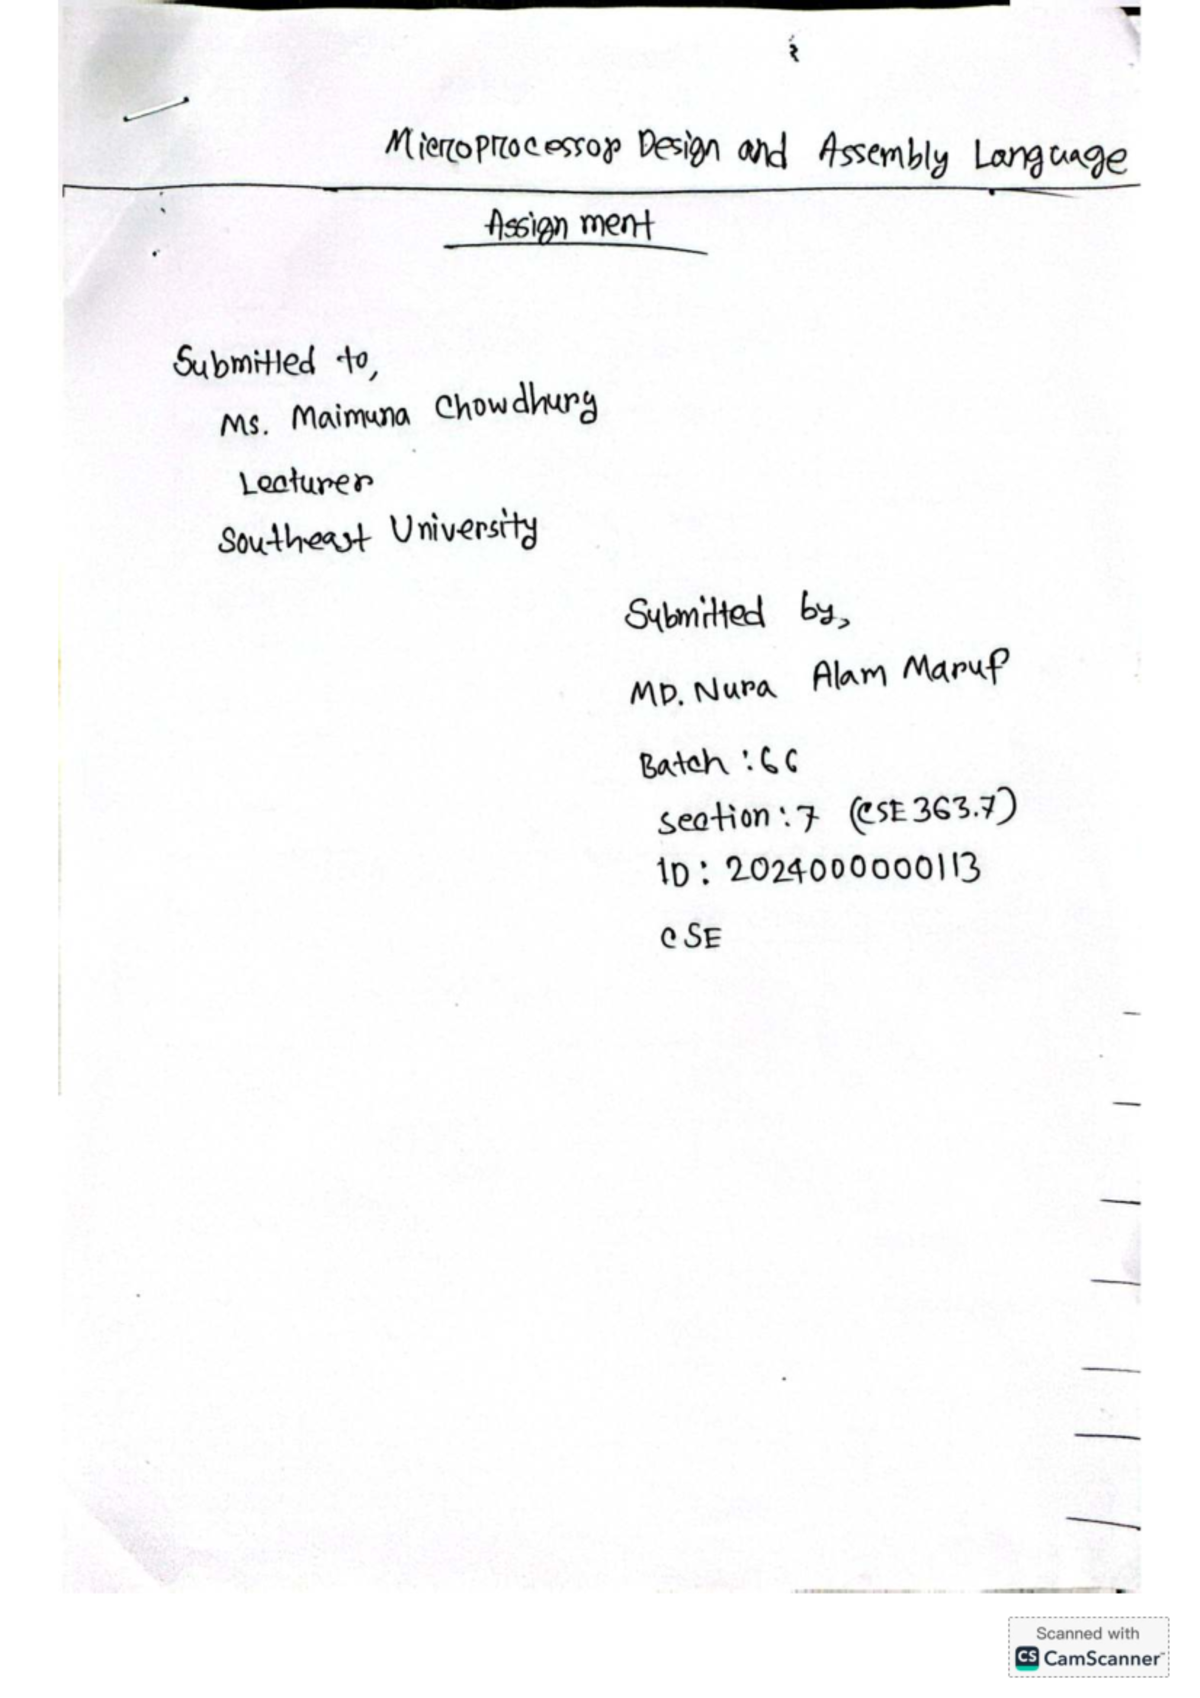 Microprocessor Design and Assembly Language
Assignment
Submitted to,
Ms. Maimuna Chowdhury
Lecturer
Southeast University
Submitted by,
MD. Nura Alam Maruf
Batch : 66
Section : 7 (CSE 363.7)
ID : 2024000000113
CSE
Scanned with
CS CamScanner